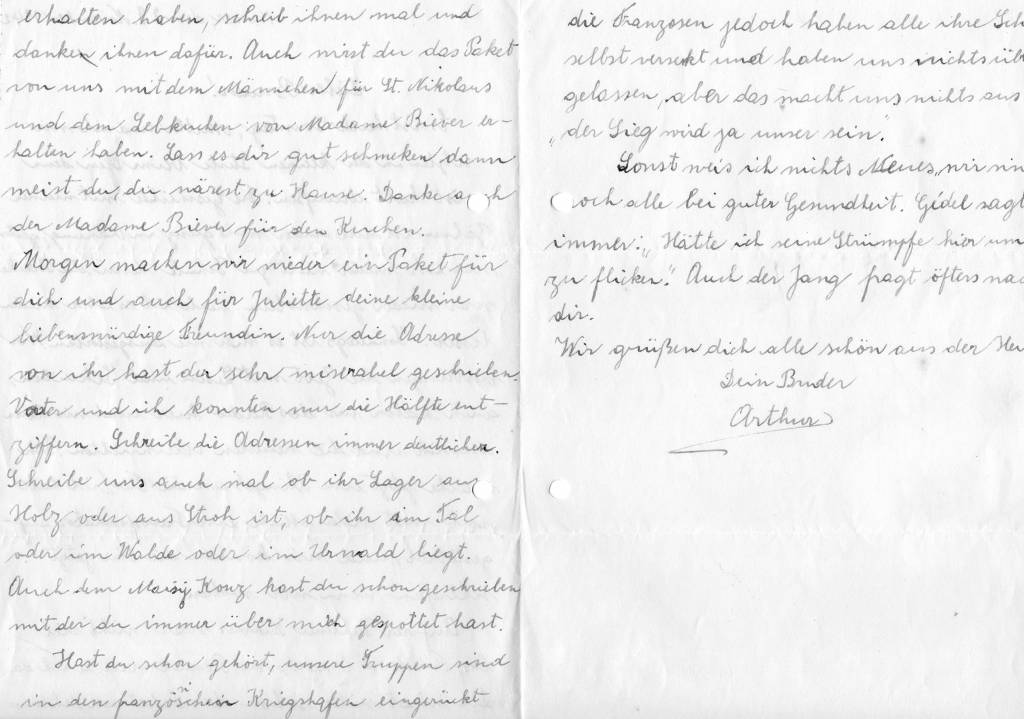 erhalten haben, schreib ihnen mal und
danken ihnen dafür. Auch wirst du das Paket
von uns mit dem Männchen für St. Nikolaus
und dem Lebkuchen von Madame Biever er-
halten haben. Lass es dir gut schmeken dann
meist du, du wärest zu Hause. Danke auch
der Madame Biever für den Kuchen.
Morgen machen wir wieder ein Paket für
dich und auch für Juliette deine kleine
liebenswürdige Freundin. Nur die Adresse
von ihr hast du sehr miserabel geschrieben.
Vater und ich konnten nur die Hälfte ent-
ziffern. Schreibe die Adressen immer deutlicher.
Schreibe uns auch mal ob ihr Lager aus
Holz oder aus Stroh ist, ob ihr im Tal
oder im Walde oder im Urwald liegt.
Auch dem Konz hast du schon geschrieben
mit der du immer über mich gespottet hast.
Hast du schon gehört, unsere Truppen sind
in den französichen Kriegshafen eingerückt
die Franzosen jedoch haben alle ihre Sch
selbst versenkt und haben uns nichts übr
gelassen, aber das macht uns nichts aus
„der Sieg wird ja unser sein".
Sonst weis ich nichts Neues, wir sin
noch alle bei guter Gesundheit. Gidel sagt
immer: „Hätte ich seine Strümpfe hier um
zu flicken". Auch der Jang fragt öfters nac
dir.
Wir grüßen dich alle schön aus der Hei
Dein Bruder
Arthur